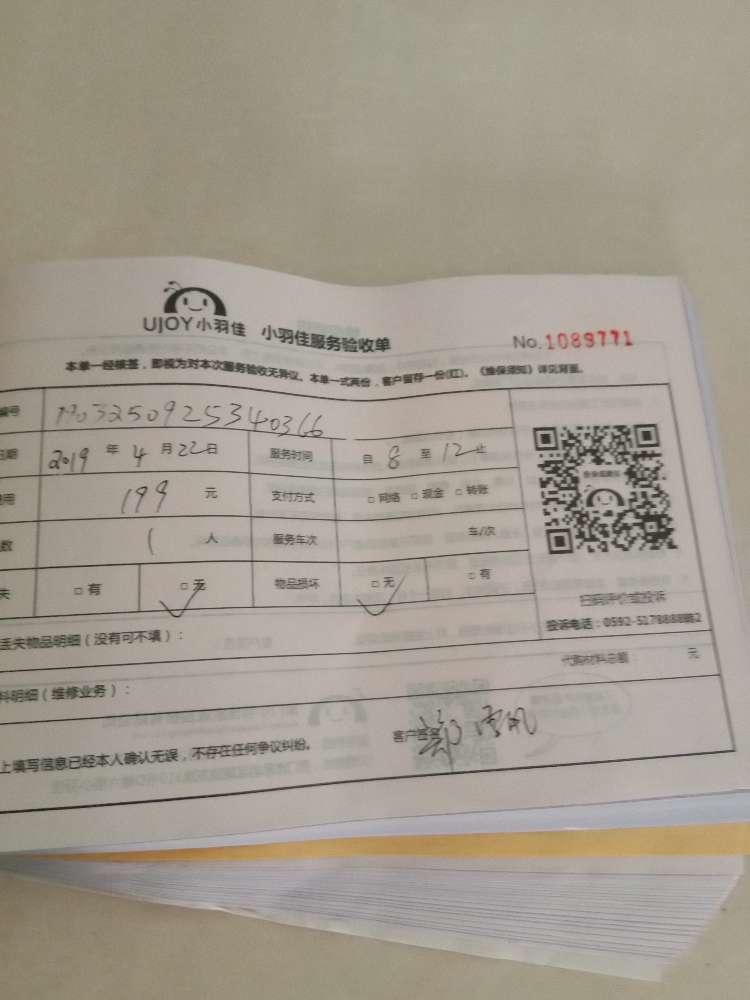 UJOY小羽佳 小羽佳服务验收单
No.1089771
本单一经核签，即视为对本次服务验收无异议。本单一式两份，客户留存一份(红)。《维保须知》详见背面。
编号
日期 2019 年 4 月 22 日 服务时间 自 8 至 12 止
用 199 元 支付方式 □ 网络 □ 现金 □ 转账
数 1 人 服务车次 车/次
失 □ 有 □ 无 物品损坏 □ 无 □ 有
扫码评价或投诉
丢失物品明细（没有可不填）：
投诉电话：0592-
料明细（维修业务）：
代购材料总额： 元
上填写信息已经本人确认无误，不存在任何争议纠纷。
客户签名